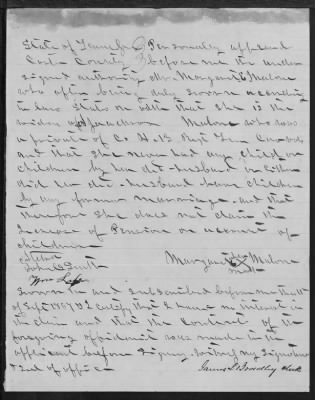 State of Tenn } Personally appeared
Coffee County } before me the under
signed authority Mrs. Margaret Malone
who after being duly sworn according
to law States on oath that She is the
widow of Jackson Malone who was
a private of Co H. 13 Regt Tenn Cavalry
and that She never had any child or
children by her dec husband neither
did her dec husband have children
by any former marriage. and that
therefore She does not claim the
Increase of Pension on account of
children
Attest
John Margaret her x mark Malone
Sworn to and Subscribed before me this
of Sept 1867 & I certify that I have no interest in
the claim and that the contents of the
foregoing affidavit was made to the
applicant before Signing, witness my Signature
& seal of office
James Bradley Clerk